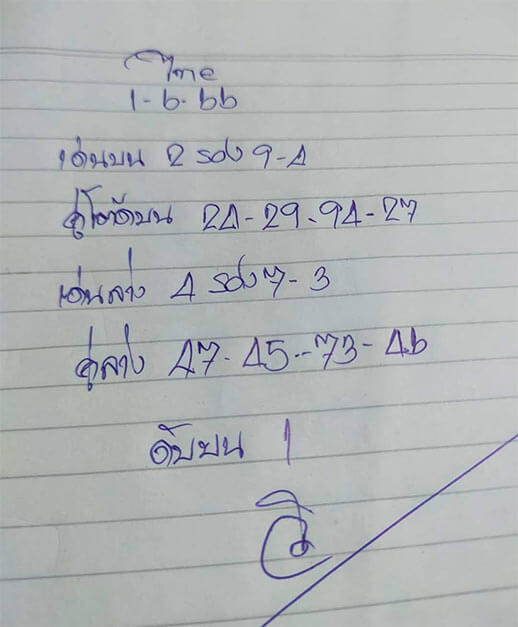 ไทย
1-6-66
เด่นบน 2 รอง 9-4
คู่โต๊ดบน 24-29-94-27
เด่นล่าง 4 รอง 7-3
คู่ล่าง 47-45-73-46
ดับบน 1